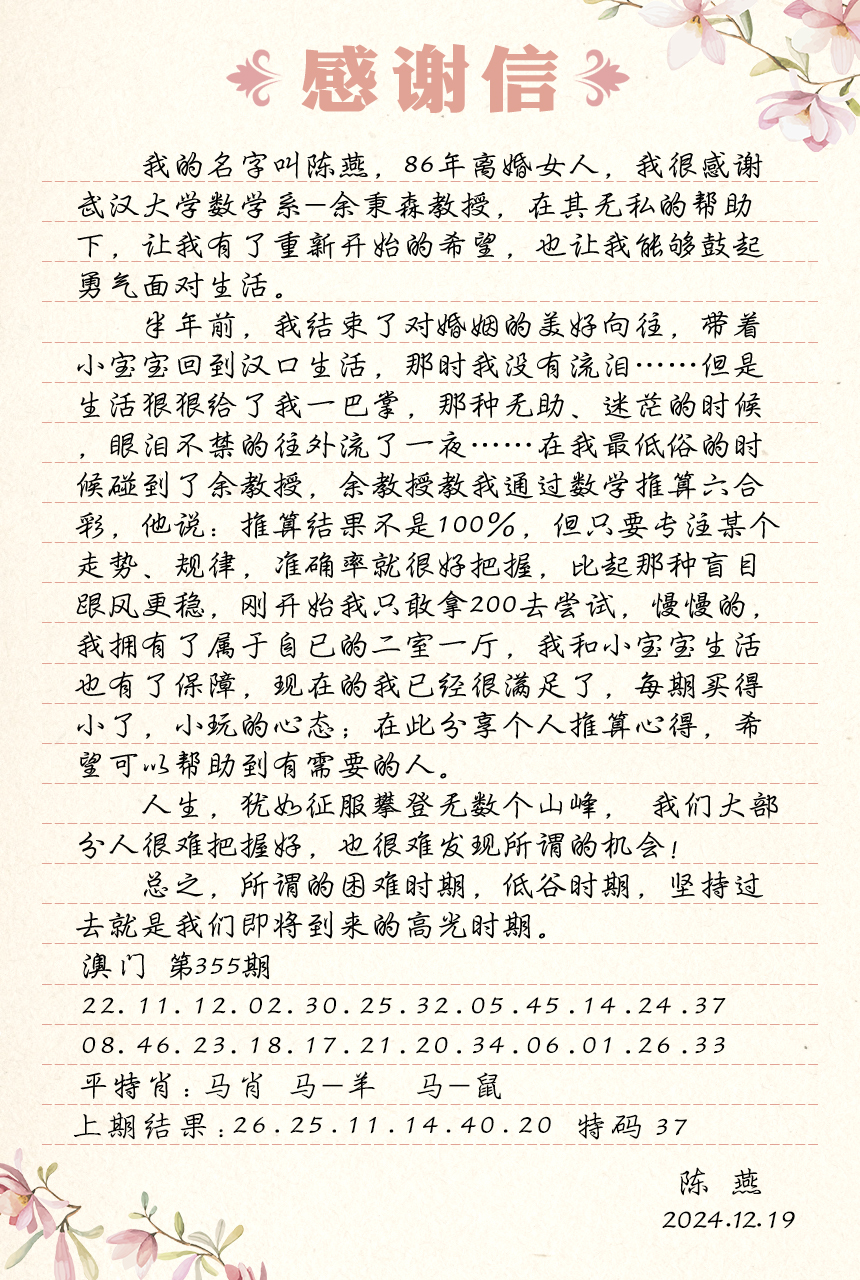 感谢信
我的名字叫陈燕，86年离婚女人，我很感谢
武汉大学数学系—余秉森教授，在其无私的帮助
下，让我有了重新开始的希望，也让我能够鼓起
勇气面对生活。
半年前，我结束了对婚姻的美好向往，带着
小宝宝回到汉口生活，那时我没有流泪……但是
生活狠狠给了我一巴掌，那种无助、迷茫的时候
，眼泪不禁的往外流了一夜……在我最低俗的时
候碰到了余教授，余教授教我通过数学推算六合
彩，他说：推算结果不是100%，但只要专注某个
走势、规律，准确率就很好把握，比起那种盲目
跟风更稳，刚开始我只敢拿200去尝试，慢慢的，
我拥有了属于自已的二室一厅，我和小宝宝生活
也有了保障，现在的我已经很满足了，每期买得
小了，小玩的心态；在此分享个人推算心得，希
望可以帮助到有需要的人。
人生，犹如征服攀登无数个山峰， 我们大部
分人很难把握好，也很难发现所谓的机会！
总之，所谓的困难时期，低谷时期，坚持过
去就是我们即将到来的高光时期。
澳门 第355期
22.11.12.02.30.25.32.05.45.14.24.37
08.46.23.18.17.21.20.34.06.01.26.33
平特肖：马肖 马—羊 马—鼠
上期结果：26.25.11.14.40.20 特码 37
陈 燕
2024.12.19